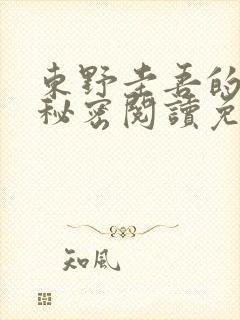 東野圭吾的
秘密閱讀免
知風